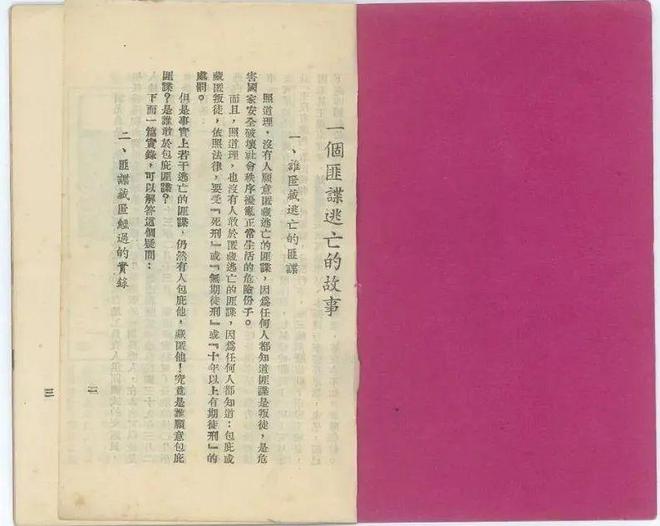 一個匪諜逃亡的故事
一、誰匿藏逃亡的匪諜
照道理，沒有人願意匿藏逃亡的匪諜，因爲任何人都知道匪諜是叛徒，是危
害國家安全破壞社會秩序擾亂正常生活的危險份子。
而且，照道理，也沒有人敢於匿藏逃亡的匪諜，因爲任何人都知道：包庇或
藏匿叛徒，依照法律，要受『死刑』或『無期徒刑』或『十年以上有期徒刑』的
處罰。
但是事實上若干逃亡的匪諜，仍然有人包庇他，藏匿他！究竟是誰願意包庇
匪諜？是誰敢於包庇匪諜？
下面一篇實錄，可以解答這個疑問：
二、匪諜藏匿經過的實錄